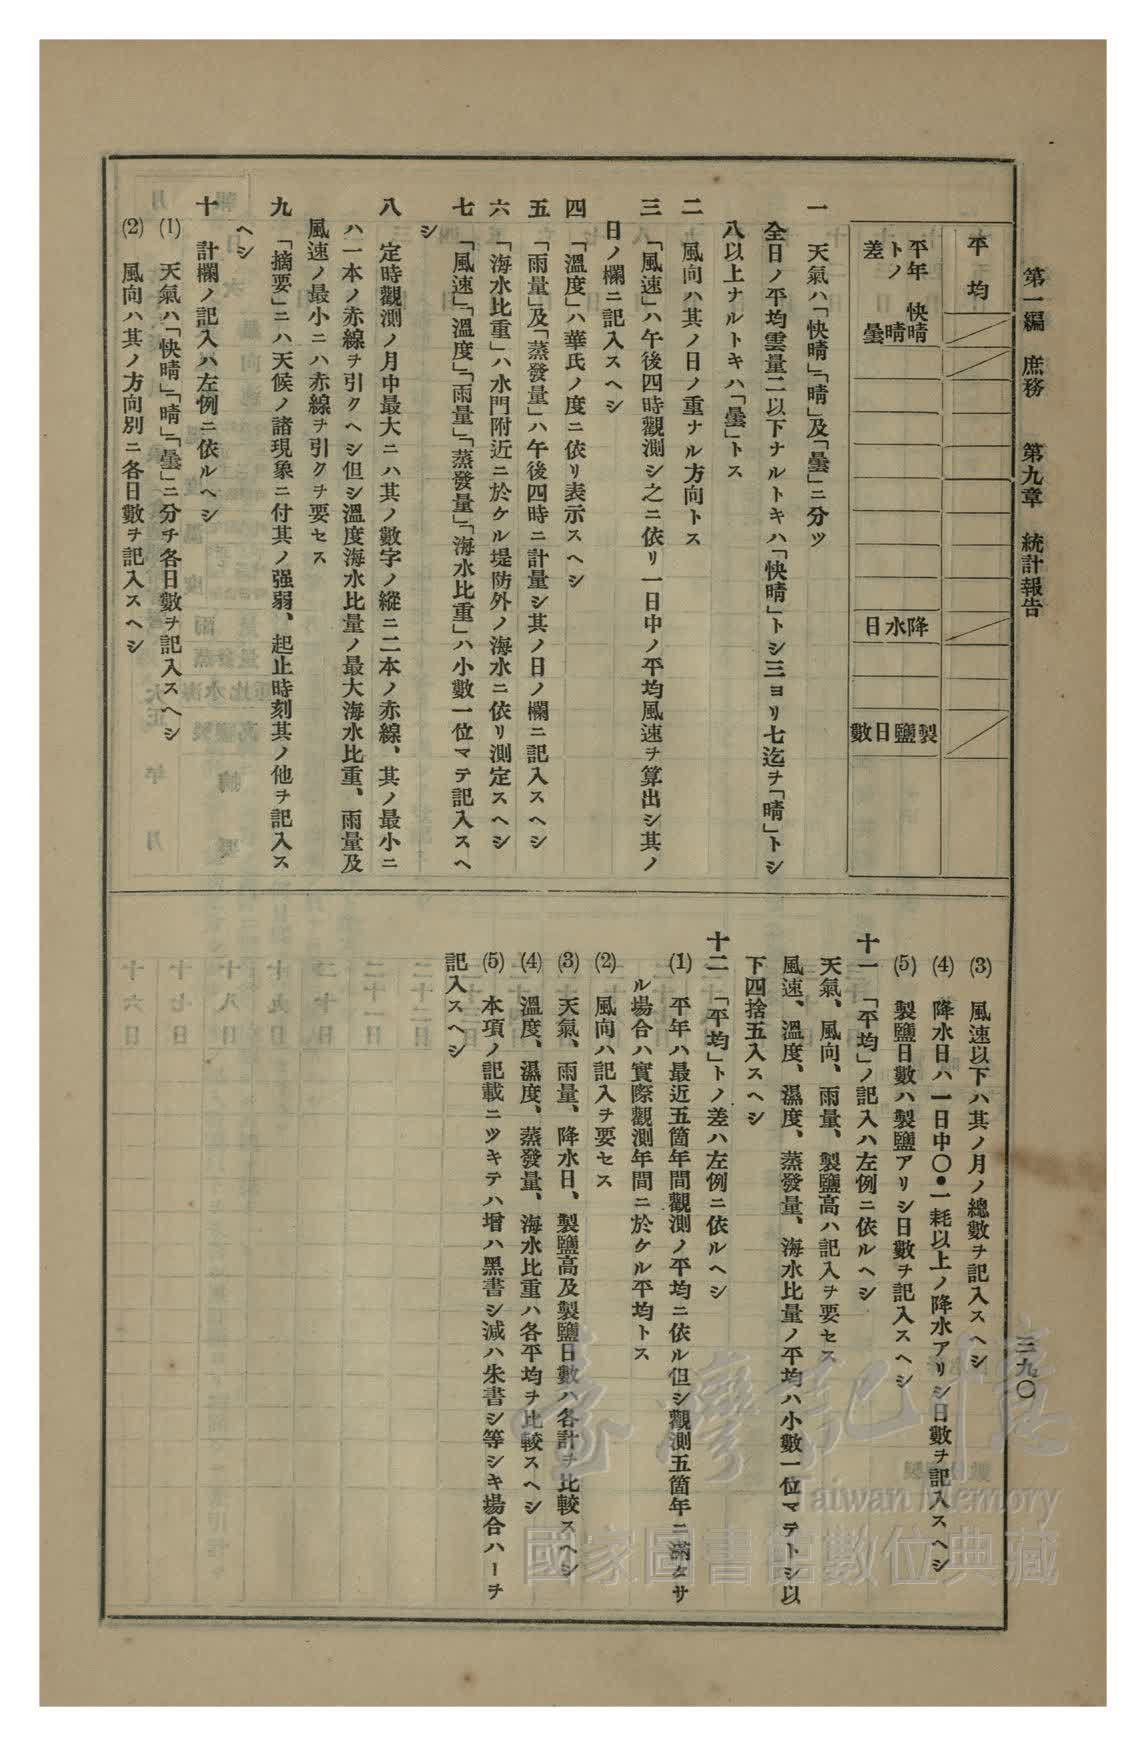 第一編 庶務 第九章 統計報告
三九〇
平均
平年トノ差
快晴
晴
曇
降水日
製鹽日數
一 天氣ハ「快晴」「晴」及「曇」ニ分ツ
全日ノ平均雲量二以下ナルトキハ「快晴」トシ三ヨリ七迄ヲ「晴」トシ
八以上ナルトキハ「曇」トス
二 風向ハ其ノ日ノ重ナル方向トス
三 「風速」ハ午後四時觀測シ之ニ依リ一日中ノ平均風速ヲ算出シ其ノ
日ノ欄ニ記入スヘシ
四 「溫度」ハ華氏ノ度ニ依リ表示スヘシ
五 「雨量」及「蒸發量」ハ午後四時ニ計量シ其ノ日ノ欄ニ記入スヘシ
六 「海水比重」ハ水門附近ニ於ケル堤防外ノ海水ニ依リ測定スヘシ
七 「風速」「溫度」「雨量」「蒸發量」「海水比重」ハ小數一位マテ記入スヘ
シ
八 定時觀測ノ月中最大ニハ其ノ數字ノ縱ニ二本ノ赤線、其ノ最小ニ
ハ一本ノ赤線ヲ引クヘシ但シ溫度海水比量ノ最大海水比重、雨量及
風速ノ最小ニハ赤線ヲ引クヲ要セス
九 「摘要」ニハ天候ノ諸現象ニ付其ノ强弱、起止時刻其ノ他ヲ記入ス
ヘシ
十 計欄ノ記入ハ左例ニ依ルヘシ
(1) 天氣ハ「快晴」「晴」「曇」ニ分チ各日數ヲ記入スヘシ
(2) 風向ハ其ノ方向別ニ各日數ヲ記入スヘシ
(3) 風速以下ハ其ノ月ノ總數ヲ記入スヘシ
(4) 降水日ハ一日中〇•一粍以上ノ降水アリシ日數ヲ記入スヘシ
(5) 製鹽日數ハ製鹽アリシ日數ヲ記入スヘシ
十一 「平均」ノ記入ハ左例ニ依ルヘシ
天氣、風向、雨量、製鹽高ハ記入ヲ要セス
風速、溫度、濕度、蒸發量、海水比量ノ平均ハ小數一位マテトシ以
下四捨五入スヘシ
十二 「平均」トノ差ハ左例ニ依ルヘシ
(1) 平年ハ最近五箇年間觀測ノ平均ニ依ル但シ觀測五箇年ニ滿タサ
ル場合ハ實際觀測年間ニ於ケル平均トス
(2) 風向ハ記入ヲ要セス
(3) 天氣、雨量、降水日、製鹽高及製鹽日數ハ各計ヲ比較スヘシ
(4) 溫度、濕度、蒸發量、海水比重ハ各平均ヲ比較スヘシ
(5) 本項ノ記載ニツキテハ增ハ黑書シ減ハ朱書シ等シキ場合ハーヲ
記入スヘシ
臺灣記憶
Taiwan Memory
國家圖書館數位典藏